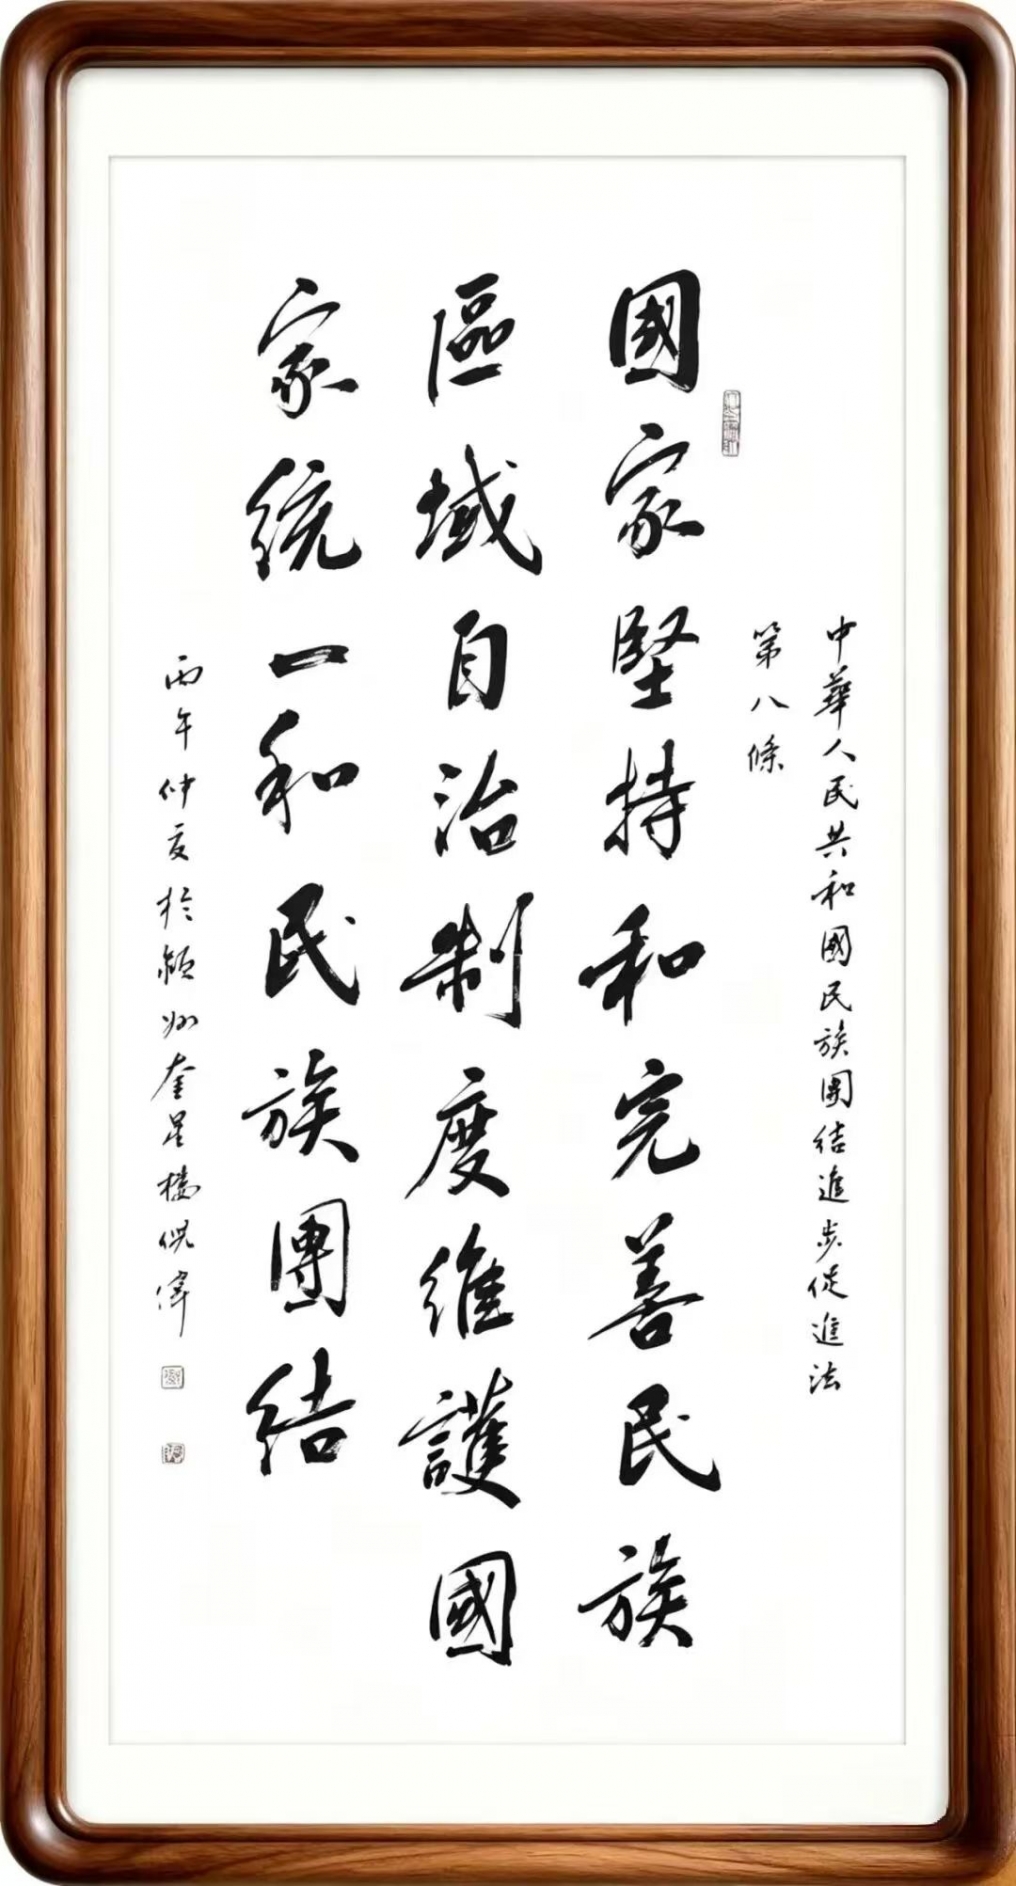 中華人民共和國民族團結進步促進法
第八條
國家堅持和完善民族
區域自治制度維護國
家統一和民族團結
丙午仲夏於潁州奎星樓倪偉